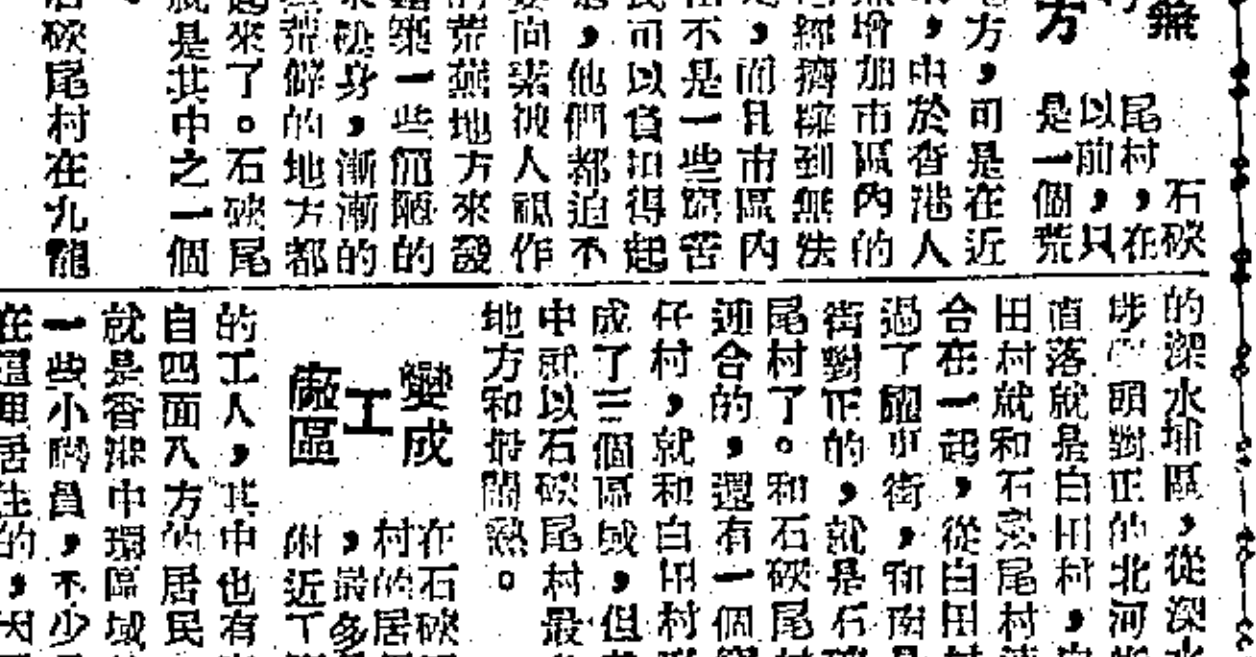 無
方
石硤
尾村，在
以前，只
是一個荒
方，可是在近
，由於香港人
增加市區內的
經濟擴到無法
，而且市區內
不是一些窮苦
可以負担得起
，他們都迫不
向素被人視作
荒蕪地方來發
築一些簡陋的
身，漸漸的
荒僻的地方都
起來了。石硤尾
就是其中之一個
石硤尾村在九龍
的深水埔區，從深水
埗頭對正的北河街
直落就是白田村，
田村就和石硤尾村
合在一起，從白田村
過了街，和南
街對正的，就是石硤
尾村了。和石硤尾村
迎合的，還有一個
仔村，就和白田村
成了三個區域，但
中就以石硤尾村最
地方和最鬧熱。
變成
工
廠區
在石硤
村的居
，最多
附近工
的工人，其中也有
自四面八方的居民
就是香港中環區域
一些小職員，不少
在這里居住的，因